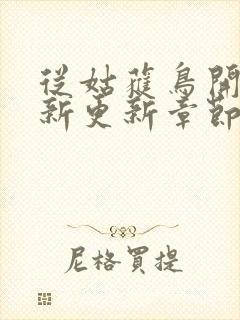 從姑蘓鳥開
新更新章節
尼格買提